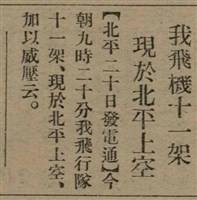 我飛機十一架
現於北平上空
【北平二十日發電通】今
朝九時二十分我飛行隊
十一架、現於北平上空、
加以威壓云。